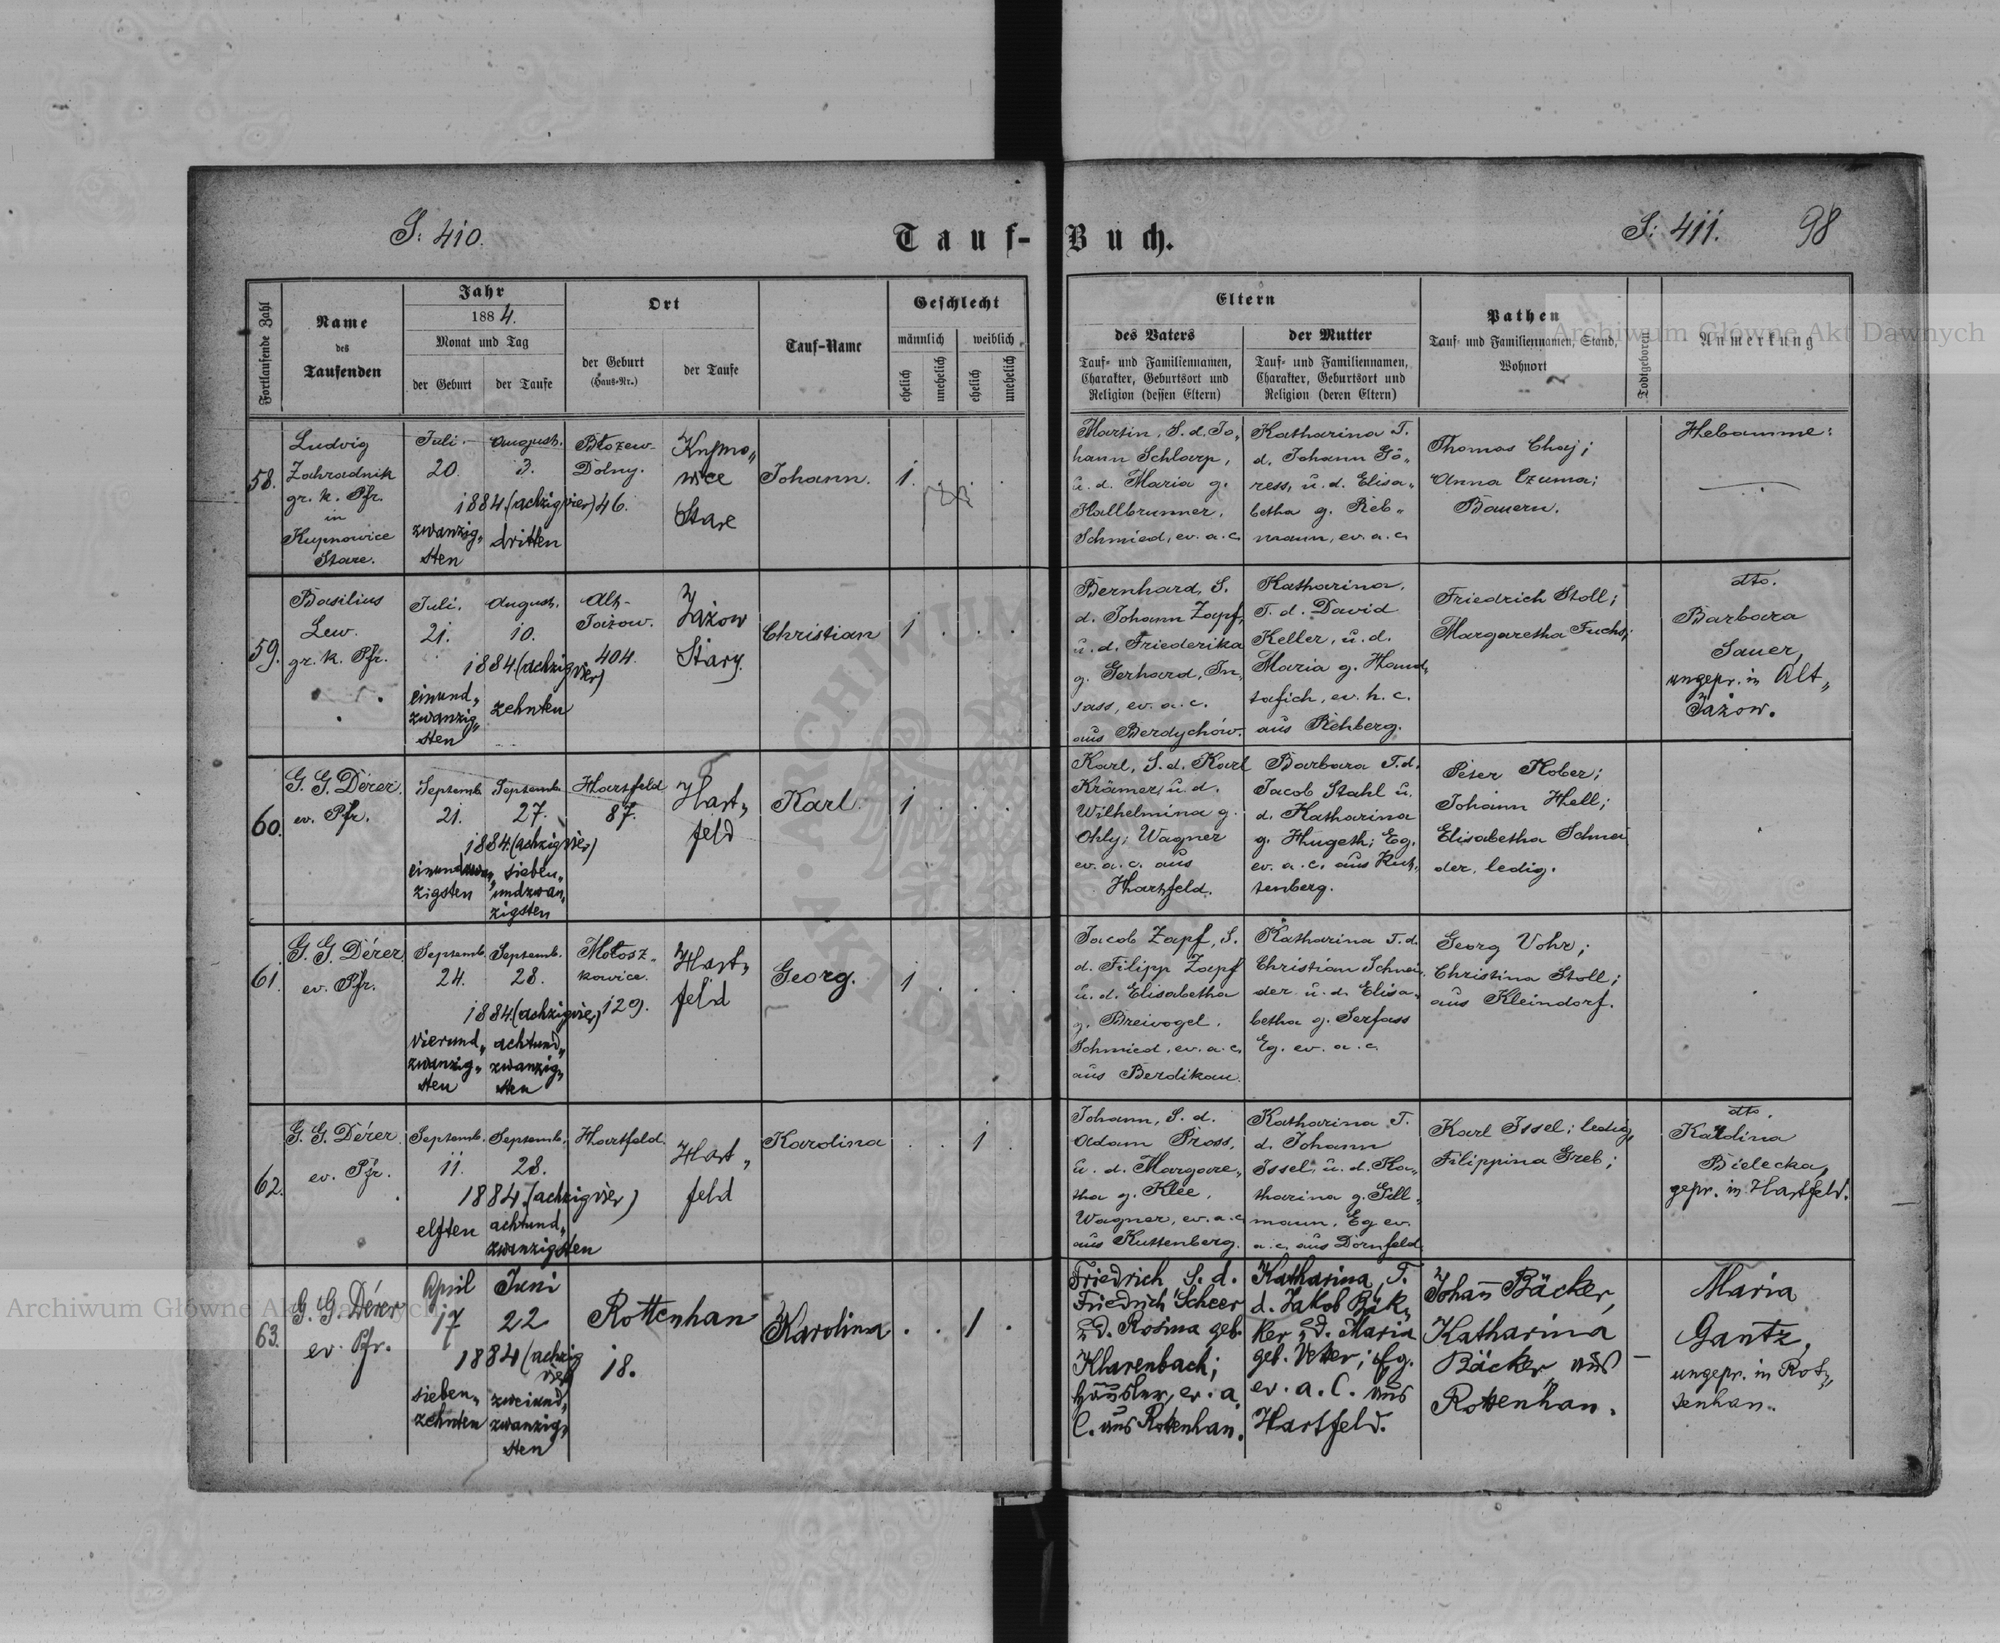 S. 410.
Tauf-Buch.
S. 411.
98
Fortlaufende Zahl
Name
des
Taufenden
Jahr
1884.
Monat und Tag
der Geburt
der Taufe
Ort
der Geburt
(Haus-Nr.)
der Taufe
Tauf-Name
Geschlecht
männlich
weiblich
ehelich
unehelich
ehelich
unehelich
Eltern
des Vaters
Tauf- und Familiennamen,
Charakter, Geburtsort und
Religion (dessen Eltern)
der Mutter
Tauf- und Familiennamen,
Charakter, Geburtsort und
Religion (deren Eltern)
Pathen
Tauf- und Familiennamen, Stand,
Wohnort
Todtgeboren
Anmerkung
Archiwum Główne Akt Dawnych
58.
Ludvig
Zahradnik
gr. k. Pfr.
in
Kupnowice
Stare.
Juli.
20.
August.
3.
1884.(achzigvier)
zwanzig„
sten
dritten
Błozew-
Dolny.
46.
Kupno„
wice
Stare
Johann.
1.
Martin, S. d. Jo„
hann Schlarp,
u. d. Maria g.
Hallbrunner,
Schmied, ev. a. c.
Katharina T.
d. Johann Gö„
ress, u. d. Elisa„
betha g. Reb„
mann, ev. a. c.
Thomas Chaj;
Anna Czuma;
Bauern.
Hebamme:
59.
Basilius
Lew.
gr. k. Pfr.
Juli.
21.
August.
10.
1884.(achzigvier)
einund„
zwanzig„
sten
zehnten
Alt-
Jażow.
404.
Jażow
Stary.
Christian
1
Bernhard, S.
d. Johann Zapf,
u. d. Friederika
g. Gerhard, In„
sass, ev. a. c.
aus Berdychów.
Katharina,
T. d. David
Keller, u. d.
Maria g.
ev. h. c.
aus Rehberg.
Friedrich Stoll;
Margaretha Fuchs;
dto.
Barbara
Sauer,
ungepr. in Alt„
Jażow.
60.
G. G. Dérer.
ev. Pfr.
Septemb.
21.
Septemb.
27.
1884.(achzigvier)
einundzwan„
zigsten
sieben„
undzwan„
zigsten
Hartfeld
87.
Hart„
feld
Karl.
1
Karl, S. d. Karl
Krämer, u. d.
Wilhelmina g.
Ohly; Wagner
ev. a. c. aus
Hartfeld.
Barbara T. d.
Jacob Stahl u.
d. Katharina
g. Hugeth; Eg.
ev. a. c. aus Kut„
tenberg.
Peter Kober;
Johann Hell;
Elisabetha Schnei
der, ledig.
61.
G. G. Dérer
ev. Pfr.
Septemb.
24.
Septemb.
28.
1884.(achzigvier)
vierund„
zwanzig„
sten
achtund„
zwanzig„
sten
Mołosz„
kowice.
129.
Hart„
feld
Georg.
1
Jacob Zapf, S.
d. Filipp Zapf
u. d. Elisabetha
g. Breivogel.
Schmied, ev. a. c.
aus Berdikau.
Katharina T. d.
Christian Schnei„
der u. d. Elisa„
betha g. Serfass
Eg. ev. a. c.
Georg Vohr;
Christina Stoll;
aus Kleindorf.
62.
G. G. Dérer.
ev. Pfr.
Septemb.
11.
Septemb.
28.
1884.(achzigvier)
elften
achtund„
zwanzigsten
Hartfeld.
Hart„
feld
Karolina
1
Johann, S. d.
Adam Pross,
u. d. Margare„
tha g. Klee,
Wagner, ev. a. c.
aus Kuttenberg.
Katharina T.
d. Johann
Issel, u. d. Ka„
tharina g. Gill„
mann, Eg ev.
a. c. aus Dornfeld.
Karl Issel; ledig,
Filippina Greb;
dto.
Karolina
Bielecka,
gepr. in Hartfeld.
63.
G. G. Dérer
ev. Pfr.
April
17
Juni
22
1884 (achzig
vier)
sieben„
zehnten
zweiund„
zwanzig„
sten
Rottenhan
18.
Karolina
1
Friedrich S. d.
Friedrich Scheer
u. d. Rosina geb.
Klarenbach;
Häusler, ev. a.
C. aus Rottenhan.
Katharina, T.
d. Jakob Bäk„
ker u. d. Maria
geb. Vetter; Eg.
ev. a. C. aus
Hartfeld.
Johann Bäcker,
Katharina
Bäcker, aus
Rottenhan.
—
Maria
Gantz,
ungepr. in Rot„
tenhan.
Archiwum Główne Akt Dawnych